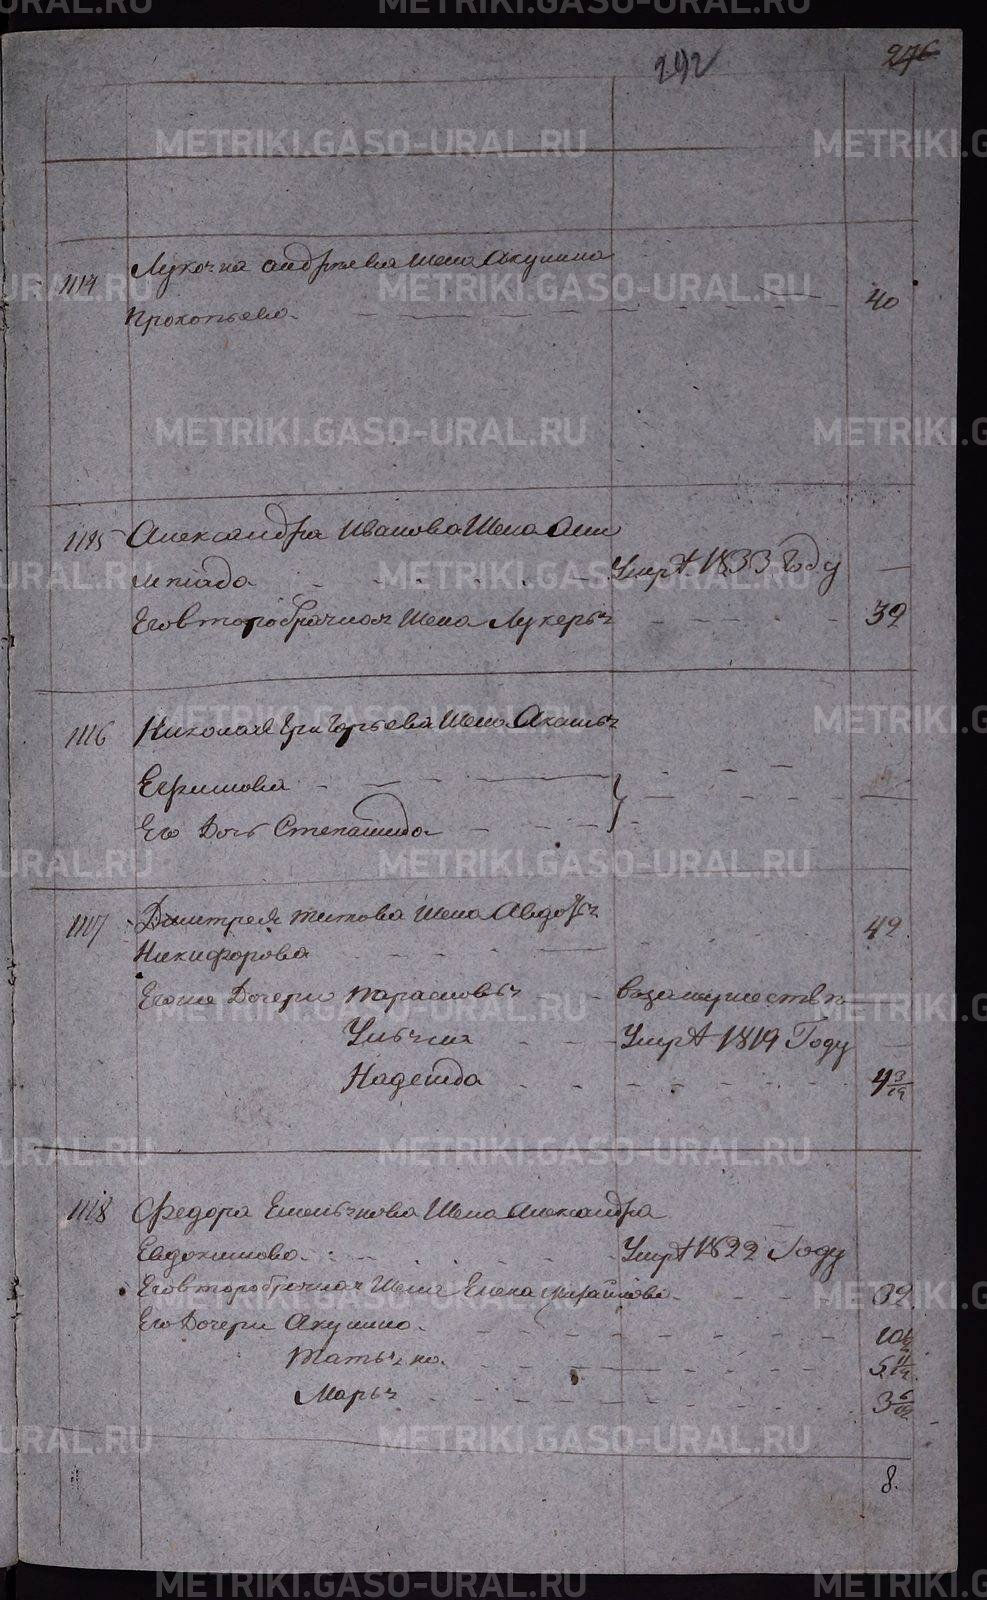 METRIKI.GASO-URAL.RU
292
276
1114 Андреева жена Акулина
Прокопьева 40
1115 Александра Иванова жена Оли
мпиада Умрѣ 1833 Году
Его второбрачная жена Лукерья 39
1116 Николая Григорьева жена
Ефимова
Его дочь Степанида
1117 Дмитрея Титова жена Авдотья 42
Никифорова
Его же дочери Парасковья в замужествѣ
Ульяна Умрѣ 1819 Году
Надежда
1118 Федора Емельянова жена Александра
Евдокимова Умрѣ 1822 Году
Его второбрачная жена Елена Михайлова 39
Его дочери Акулина
Татьяна 5 11/12
Марья 3 6/12
8.